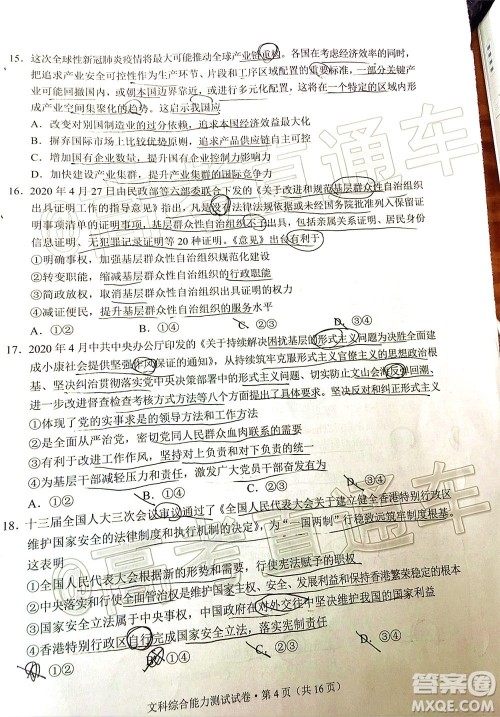 15. 这次全球性新冠肺炎疫情将最大可能推动全球产业链重构。各国在考虑经济效率的同时，
把追求产业安全可控性作为生产环节、片段和工序区域配置的重要标准，一部分关键
产业可能回撤国内，或朝本国边界靠近，或进行多元化配置，这将在一个特定的区域形
成产业空间集聚化的趋势。这启示我国应
A. 改变对别国制造业的过分依赖，追求本国经济效益最大化
B. 摒弃国际市场上比较优势原则，追求产品供应链自主可控
C. 增加国有企业数量，提升国有经济控制力和影响力
D. 构建产业集群，提升产业集群的国际竞争力
16. 2020 年 4 月 27 日由民政部等六部委联合下发的《关于改进和规范基层群众性自治组织
出具证明工作的指导意见》指出，凡是没有法律法规或未经国务院批准列入保留证
明事项清单的证明事项，基层群众性自治组织不予出具，包括亲属关系证明、居民身份
信息证明、无犯罪记录证明等 20 种证明。《意见》出台有利于
①明确权力，加强基层群众性自治组织规范化建设
②转变职能，缩减基层群众性自治组织的行政职能
③简政放权，取消基层群众性自治组织的权力
④减证便民，提升基层群众性自治组织的服务水平
A. ①② B. ①④ C. ②③ D. ③④
17. 2020 年 4 月中共中央办公厅印发的《关于持续解决困扰基层的形式主义问题为决胜全面建
成小康社会提供坚强作风保证的通知》，从持续筑牢克服形式主义官僚主义的思想政治根
基、坚决纠治贯彻落实党中央决策部署中的形式主义问题、切实防止文山会海反弹回潮、
改进督查检查考核方式方法等八个方面作出了部署。坚决反对和纠正形式主义
①体现了党的实事求是的领导方式和工作作风
②是全面从严治党，密切党同人民群众血肉联系的需要
③有利于改进工作作风，坚持对上负责和对下负责的统一
④为基层干部减轻压力和责任，激发广大党员干部奋发有为
A. ①② B. ①④ C. ②③ D. ③④
18. 十三届全国人大三次会议审议通过了《全国人民代表大会关于建立健全香港特别行政区
维护国家安全的法律制度和执行机制的决定》，为“一国两制”行稳致远筑牢制度根基。
这表明
①全国人民代表大会根据新的形势和需要，行使宪法赋予的职权
②中央落实和行使全面管治权是维护国家主权、安全、发展利益和保持香港繁荣稳定的根本
③国家安全立法属于中央事权，中国政府在对外交往中维护我国的独立和主权
④香港特别行政区自行完成国家安全立法，落实宪制责任
A. ①② B. ①③ C. ②④ D. ③④
文科综合能力测试试卷·第 4 页（共 16 页）
高考直通车
答案圈
MXQE.COM